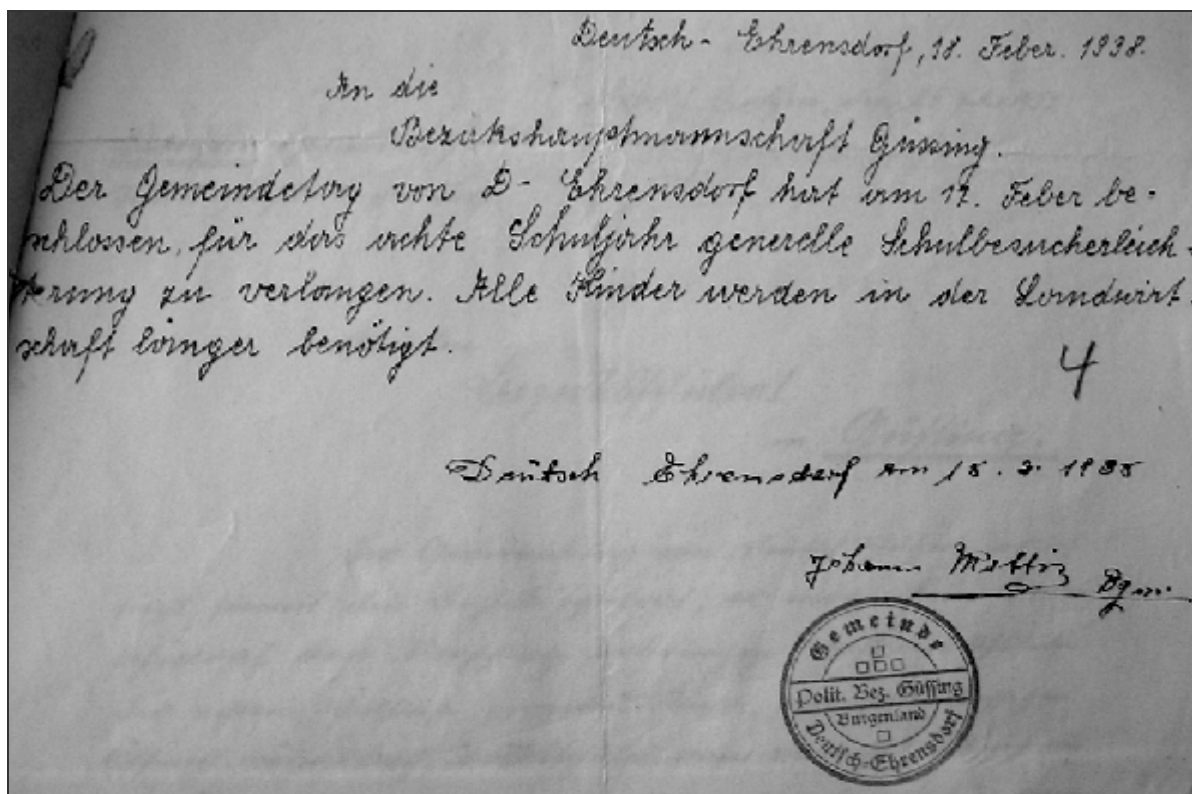 Deutsch - Ehrensdorf, 18. Feber. 1938.
An die
Bezirkshauptmannschaft Güssing.
Der Gemeindetag von D- Ehrensdorf hat am 17. Feber be-
schlossen, für das achte Schuljahr generelle Schulbesucherleich-
terung zu verlangen. Alle Kinder werden in der Landwirt-
schaft länger benötigt.
4
Deutsch Ehrensdorf am 18. 2. 1938
Johann Bgm.
Gemeinde
Polit. Bez. Güssing
Burgenland
Deutsch-Ehrensdorf